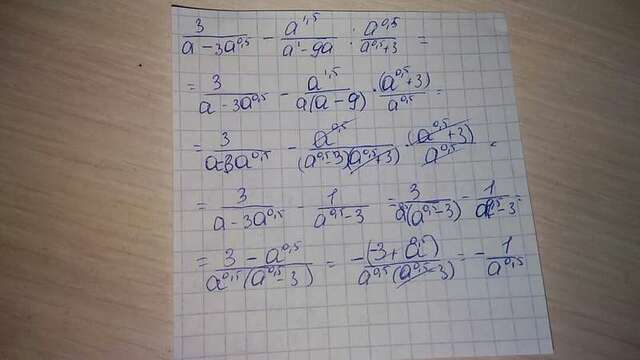 3/(a - 3a^0,5) - a^1,5/(a' - 9a) : a^0,5/(a^0,5 + 3) =
= 3/(a - 3a^0,5) - a^1,5/(a(a - 9)) · (a^0,5 + 3)/a^0,5 =
= 3/(a - 3a^0,5) - a^0,5/((a^0,5 - 3)(a^0,5 + 3)) · (a^0,5 + 3)/a^0,5 =
= 3/(a - 3a^0,5) - 1/(a^0,5 - 3) = 3/(a^0,5(a^0,5 - 3)) - 1/(a^0,5 - 3) =
= (3 - a^0,5)/(a^0,5(a^0,5 - 3)) = -(-3 + a^0,5)/(a^0,5(a^0,5 - 3)) = - 1/a^0,5